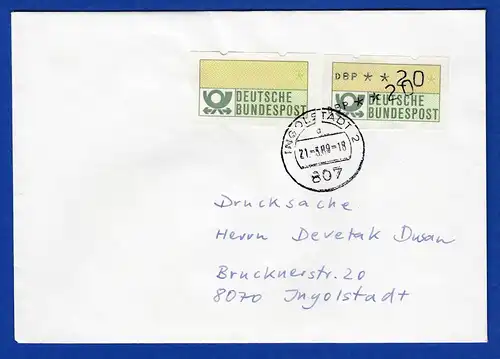 DBP * * 20
BP * * 20
DEUTSCHE
BUNDESPOST
DEUTSCHE
BUNDESPOST
INGOLSTADT 2
a
21.-3.89-18
807
Drucksache
Herrn Devetak Dusan
Brucknerstr. 20
8070 Ingolstadt